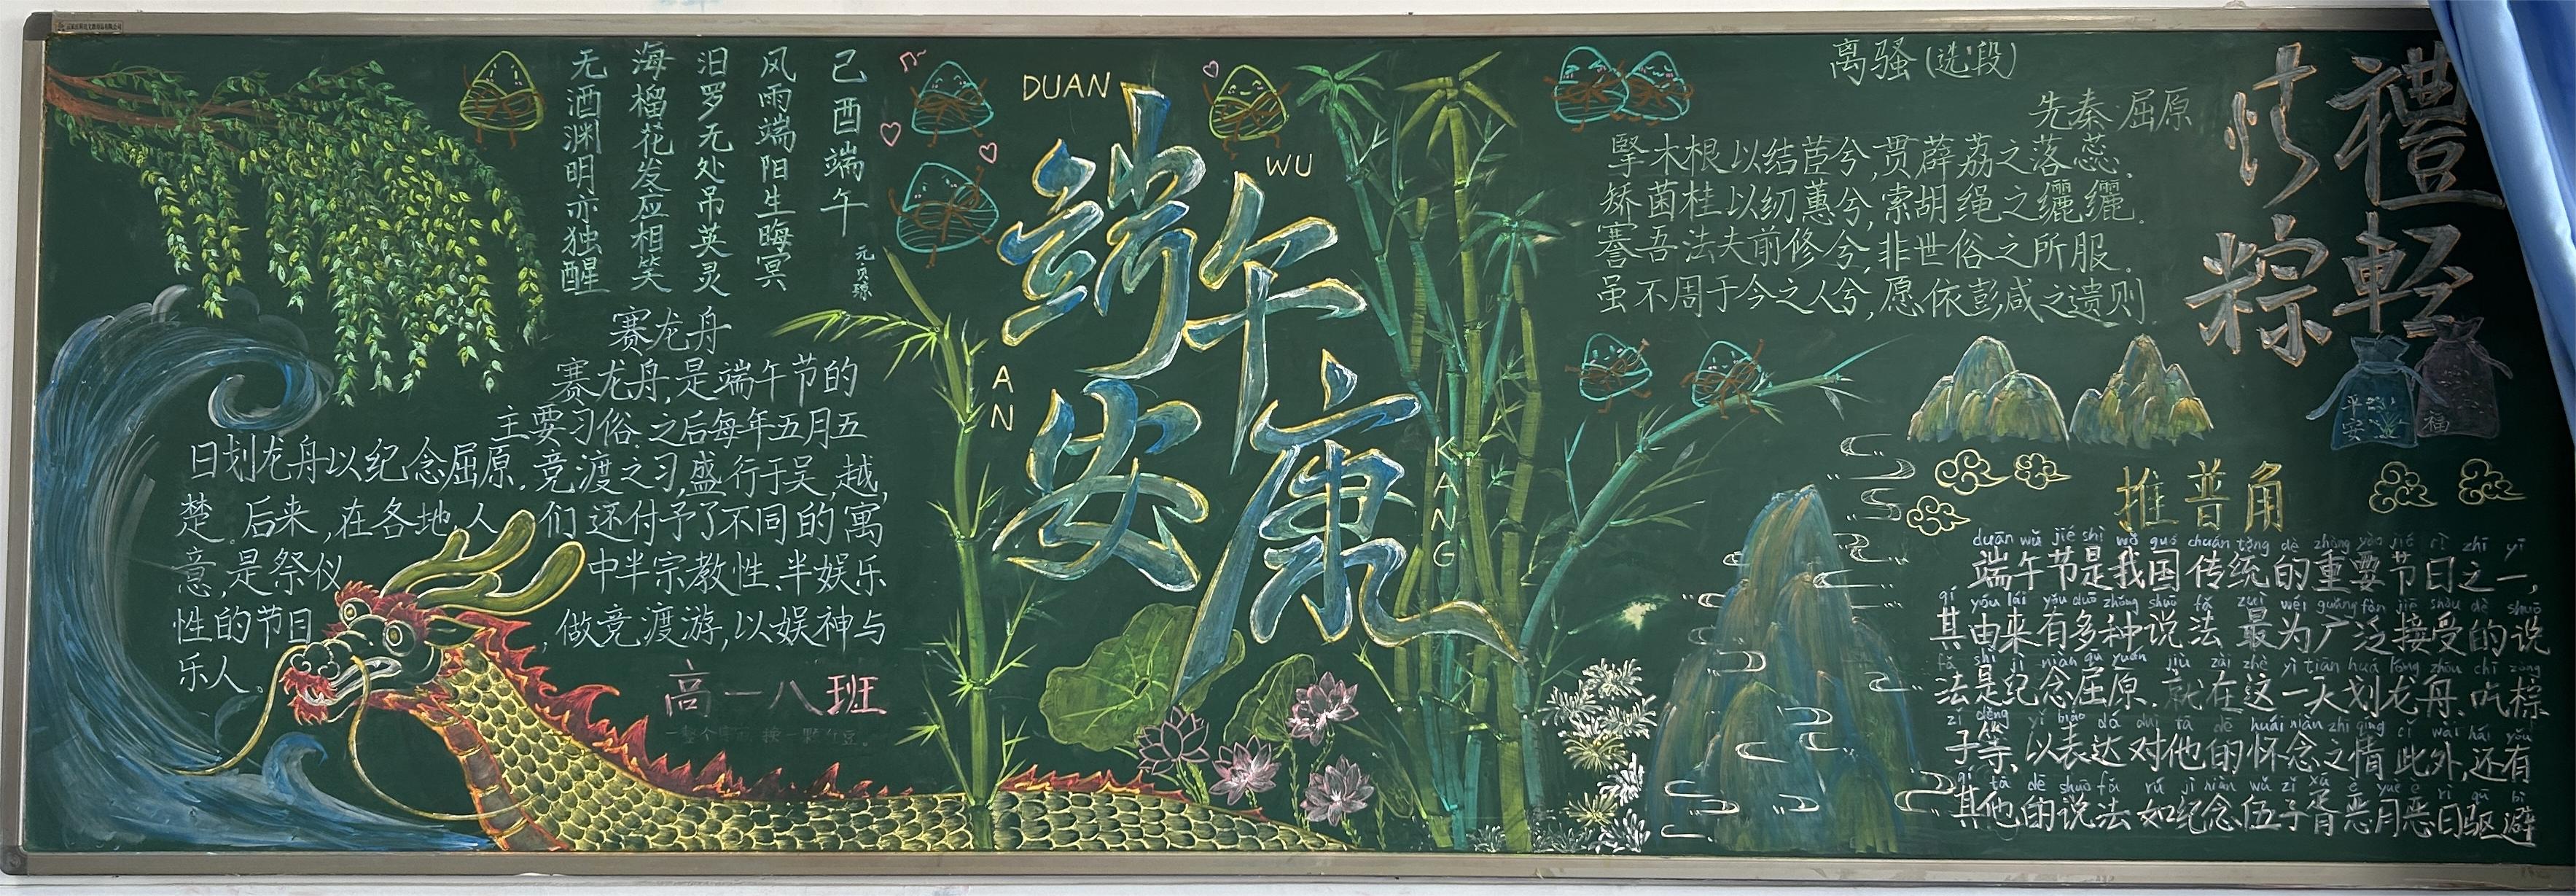 己酉端午
元 贝琼
风雨端阳生晦冥
汨罗无处吊英灵
海榴花发应相笑
无酒渊明亦独醒
赛龙舟
赛龙舟,是端午节的
主要习俗.之后每年五月五
日划龙舟以纪念屈原.竞渡之习,盛行于吴,越,
楚.后来,在各地人们还付予了不同的寓
意,是祭仪中半宗教性、半娱乐
性的节日,做竞渡游,以娱神与
乐人。
高一八班
DUAN
WU
AN
KANG
端午
安康
离骚(选段)
先秦·屈原
掔木根以结茝兮,贯薜荔之落蕊.
矫菌桂以纫蕙兮,索胡绳之纚纚.
謇吾法夫前修兮,非世俗之所服.
虽不周于今之人兮,愿依彭咸之遗则
禮輕
情粽
平安
福
推普角
duān wǔ jié shì wǒ guó chuán tǒng dè zhòng yào jié rì zhī yī
端午节是我国传统的重要节日之一,
qí yóu lái yǒu duō zhǒng shuō fǎ zuì wéi guǎng fàn jiē shòu dè shuō
其由来有多种说法 最为广泛接受的说
fǎ shì jì niàn qū yuán jiù zài zhè yì tiān huá lóng zhōu chī zòng
法是纪念屈原.就在这一天划龙舟、吃粽
zǐ děng yǐ biǎo dá duì tā dē huái niàn zhī qíng cǐ wài hái yǒu
子等,以表达对他的怀念之情 此外,还有
qí tā dē shuō fǎ rú jì niàn wǔ zǐ xū è yuè è rì qū bì
其他的说法 如纪念伍子胥 恶月恶日驱避